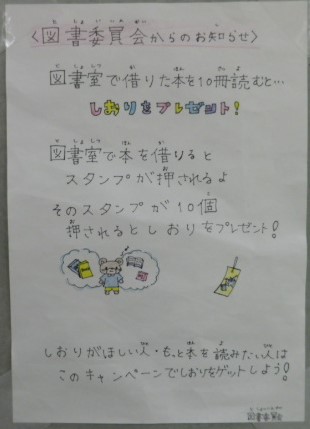 〈図書委員会からのお知らせ〉
図書室で借りた本を10冊読むと…
しおりをプレゼント!
図書室で本を借りると
スタンプが押されるよ
そのスタンプが10個
押されるとしおりをプレゼント!
しおりがほしい人・もっと本を読みたい人は
このキャンペーンでしおりをゲットしよう!
図書委員会